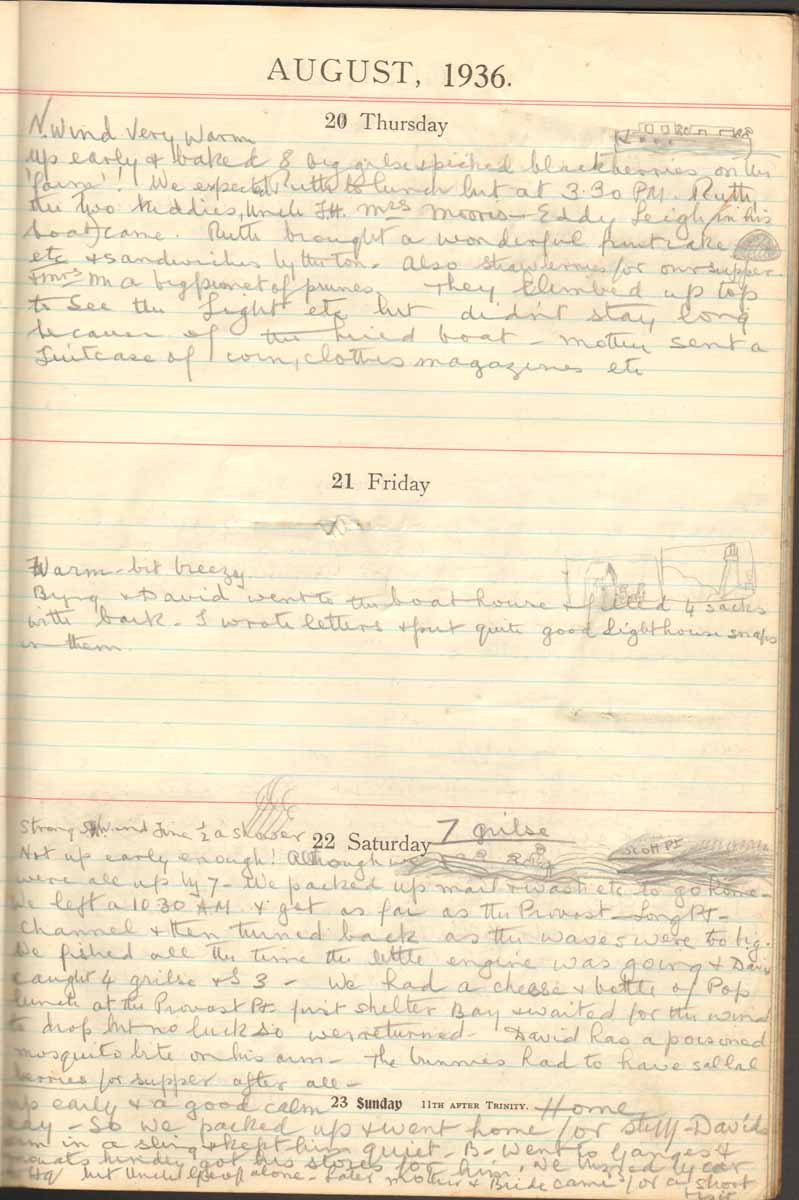 AUGUST, 1936.
20 Thursday
N. Wind Very Warm
up early & baked 8 big grilse & picked blackberries on the
'farm'! We expected Ruth to lunch but at 3.30 PM. Ruth,
the two kiddies, Uncle F.H. Mrs Morris - Eddy Leigh (in his
boat) came. Ruth brought a wonderful fruitcake
etc & sandwiches by the ton. Also strawberries for our supper
& Mrs M a big of prunes. They climbed up top
to see the Light etc but didn't stay long
because of the hired boat - mother sent a
suitcase of corn, clothes magazines etc
21 Friday
Warm - bit breezy.
Byng & David went to the boat house & filled 4 sacks
with bark. I wrote letters & put quite good lighthouse snaps
in them.
Strong wind fine ½ a shower
22 Saturday 7 grilse
Scott Pt
Not up early enough! Although we
were all up by 7 - We packed up mail & wash etc to go home -
We left a 10 30 AM. & got as far as the Provost - Long Pt -
channel & then turned back as the waves were to big.
We fished all the time the little engine was going & David
caught 4 grilse & S 3 - We had a cheese & bottle of Pop
lunch at the Provost Pt. first shelter Bay & waited for the wind
to drop but no luck so we returned - David has a poisoned
mosquito bite on his arm - The bunnies had to have sallal
berries for supper after all -
23 Sunday 11TH AFTER TRINITY. Home
up early & a good calm
day - So we packed up & went home for stuff - David's
arm in a sling & kept him quiet - B - went to Ganges &
got his stores for him. We by car
but Uncle alone - Later Mother & Bride came for a short